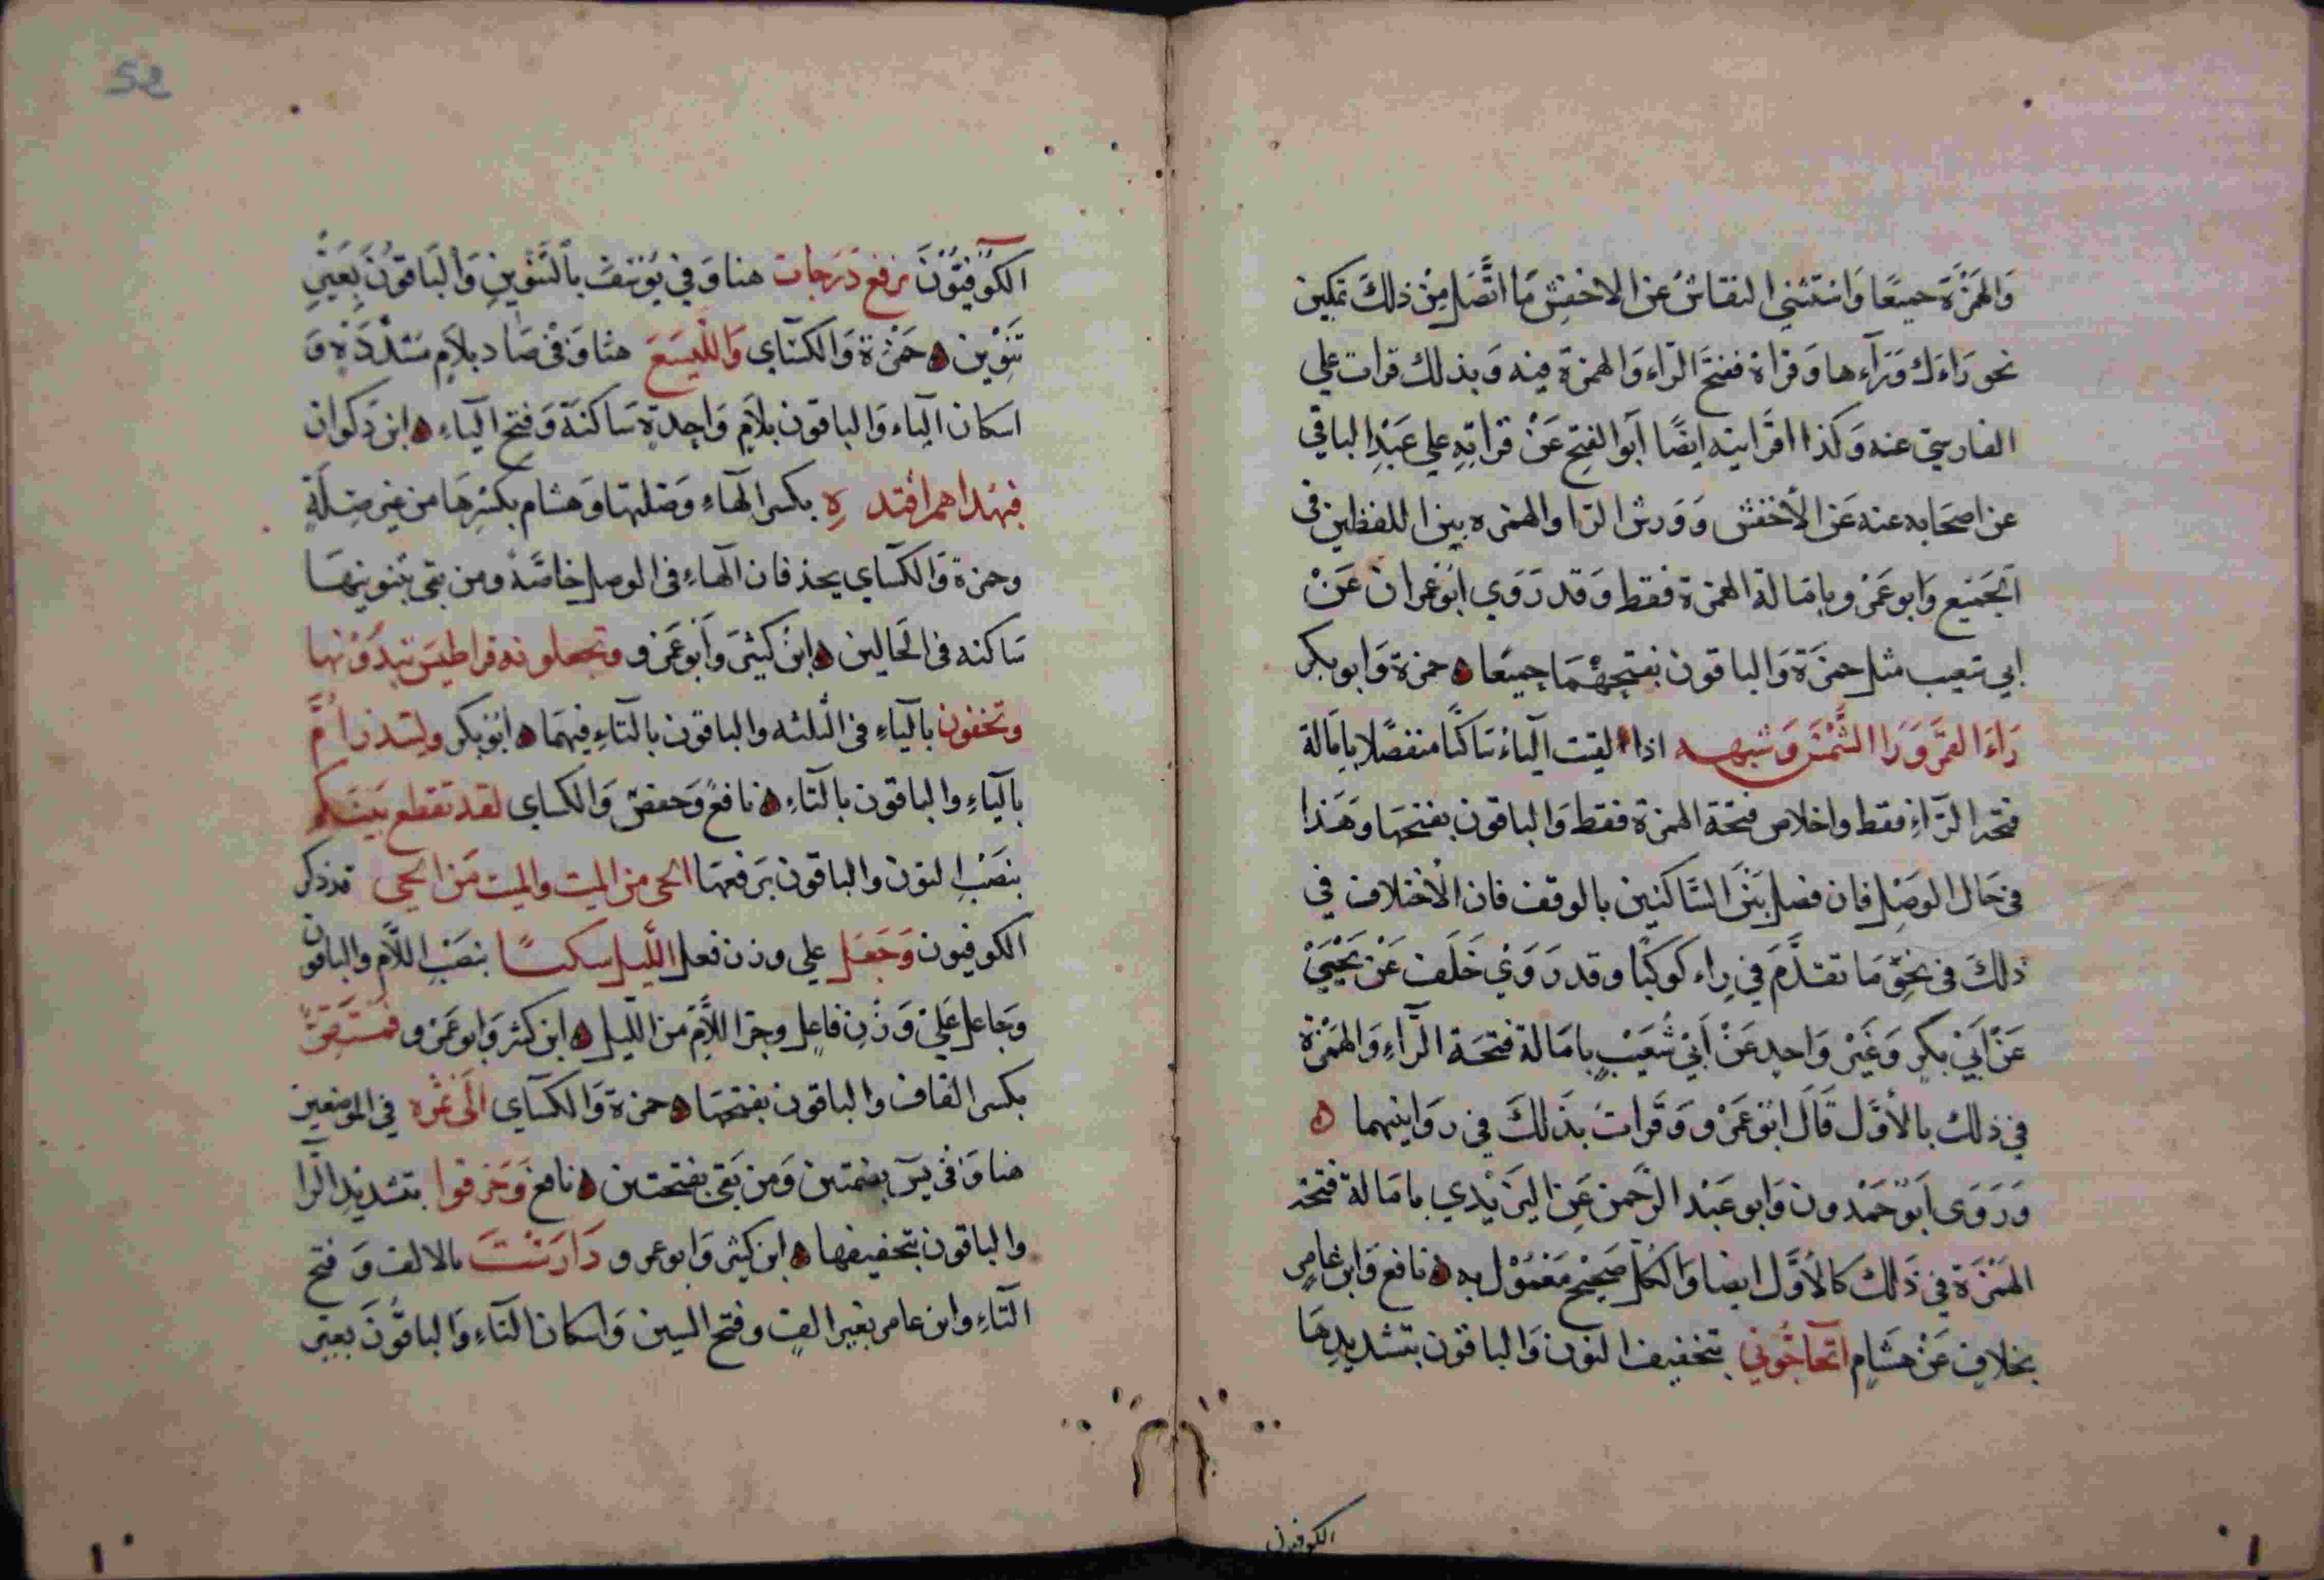 وَالهَمْزَة جميعًا وَاستثني النقاش عن الاخفش مَا اتَّصَل مِنْ ذلكَ بمكين
نحو رَاءَك وَرَآءِها وَفراة ففتح الرّاء وَالهمزة فيه وَبذلك قرات علي
الفارسيّ عنه وَكذا اقرَانيه ايضًا أبوا لفتح عَنْ قراتِهِ علي عَبْدِ الباقي
عن اصحَابه عنه عَن الأخفش وَوَرش الرّا والهمزه بين اللفظين في
الجَميْع وَابو عَمْرو بامَالة الهمزة فقط وَقد رَوَي ابُو عمران عَنْ
ابي شعيب مثل حمزَة وَالباقون بفتحِهْمَا جميعًا ه حمزة وَابو بكر
رَاءَ القمَر وَ رَا الشَّمْسَ وَ شبهه اذا لقيت اليآءُ سَاكنًا منفصَلا بامَالة
فتحه الرَّاءِ فقط واخلاص فتحة الهمزة فقط وَالباقون بفتحهَا وَهَذا
في حَال الوَصْلِ فان فصل بَيْنَ السَّاكنين بالوقف فان الأختلاف في
ذلكَ في نحو مَا تقدَّمَ في رِاء كوكبًا وقد رَوَيْ خَلَف عَنْ يَحْيَيْ
عَنْ ابَيْ بكرٍ وَ غَيْرْ وَاحِدٍ عَنْ أَبيْ شُعَيْبٍ بامَالة فتحَة الرَّآءِ وَالهمْزة
في ذلك بالأوَّل قَالَ ابُوْ عَمْرْو وَ قَراتُ بذَلكَ في روَايتهما ه
وَ رَوَى أبَوْ حَمْدون وَابو عَبْد الرَّحمن عَنِ اليَزيْدي بامَالة فتحة
الهَمْزَة في ذَلكَ كالأوَّل ايضا وَالكلّ صَحيْح مَعْمُوْل به ه نافع وَابن عامِر
بخلافٍ عَنْ هشَامٍ اتحَاجُّوني بتخفيف النوْن وَالباقون بتشديدِهَا
الكوفيون
52
الكُوْفيُّوْنَ نرفع دَرَجات هنا وَفي يُوْسف بالتَّنْوِينِ وَالبَاقوْنَ بِغَيْرِ
تَنْوين ه حَمْزة وَالكسَآي وَاللَّيْسَعَ هنا وَفي صَاد بلاَمٍ مشدَّدَةٍ وَ
اسكان اليآء وَالباقون بلاَمٍ وَاحِدةٍ سَاكنَة وَفتح اليآءِ ه ابن ذكوان
فبهُداهم اقتد هِ بكسر الهَآءِ وَصْلتها وَهشام بكسْرِهَا من غير صِلَةٍ
وحمزة وَالكسَاي يحذفان الهآءِ في الوصل خاصَّة ومن بقي يثبوينها
سَاكنه في الحَالين ه ابن كثيْر وَأبو عَمْرو وتجعلونه قراطيسَ تبدُوْنها
وتخفون باليآءِ في الثّلثه والباقون بالتآءِ فيهمَا ه ابُوْ بكر ولتنذر امَّ
باليآءِ والباقون بالتآءِ ه نافعٌ وَحفصٌ وَالكساي لقد تقطع بَيْنَكم
بنصْبِ النوْن والباقون بَرفعهَا الحي من الميت والميت مَن الحي قد ذكر
الكوفيون وَجَعَل علي وزن فعل اللّيل سكنًا بنصْبِ اللاَّم والباقون
وجَاعل عَليْ وَزنِ فاعل وجرّ اللاَّمِ مَن اللّيل ه ابن كثير وَابو عَمْرو فمُسْتَقِرٌّ
بكسر القاف والباقون بفتحهَا ه حمزة وَالكسَاي الَى ثمره في الموضعين
هنا وَفي يسَ بضمتين وَمن بَقي بفتحتين ه نافع وَخرقوا بتشديْد الرَّآ
والباقون بتخفيفها ه ابن كثيْر وَابو عمرو دَارَسْتَ بالالف وَ فتح
التَّآءِ وابن عامر بغير الفٍ وفتح السين وَاسكان التآءِ وَالباقوْنَ بغير